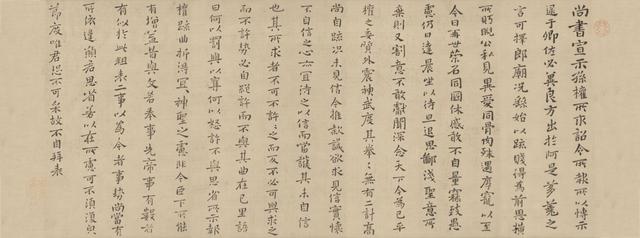 尚書宣示孫權所求詔令所報所以博示
逮于卿佐必冀良方出於阿是芻蕘之
言可擇郎廟況繇始以疏賤得為前恩橫
所盻睨公私見異愛同骨肉殊遇厚寵以至
今日再世榮名同國休慼敢不自量竊致愚
慮仍日達晨坐以待旦退思鄙淺聖意所
棄則又割意不敢獻聞深念天下今為已平
權之委質外震神武度其拳〻無有二計高
尚自疏況未見信今推款誠欲求見信實懷
不自信之心亦宜待之以信而當護其未自信
也其所求者不可不許〻之而反不必可與求之
而不許勢必自絕許而不與其曲在己里語
曰何以罰與以奪何以怒許不與思省所示報
權疏曲折得宜〻神聖之慮非今臣下所能
有增益昔與文若奉事先帝事有數者
有似於此粗表二事以為今者事勢尚當有
所依違願君思省若以在所慮可不須復皃
節度唯君恐不可采故不自拜表